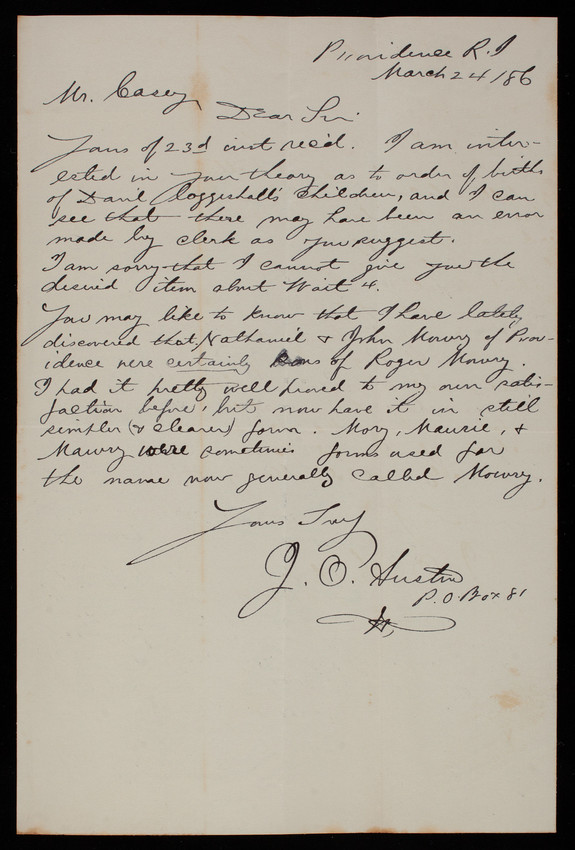 Providence R. I
March 24 / 86
Mr. Casey
Dear Sir
Yours of 23d inst rec'd. I am inter-
ested in your theory as to order of births
of Danl Coggeshall's children, and I can
see that there may have been an error
made by clerk as you suggest.
I am sorry that I cannot give you the
desired item about Wait 4.
You may like to know that I have lately
discovered that Nathaniel & John Mowry of Prov-
idence were certainly sons of Roger Mowry.
I had it pretty well proved to my own satis-
faction before, but now have it in still
simpler (& clearer) form. Mory, Maurie, &
Mawry were sometimes forms used for
the name now generally called Mowry.
Yours Truly
J. O. Austin
P. O. Box 81